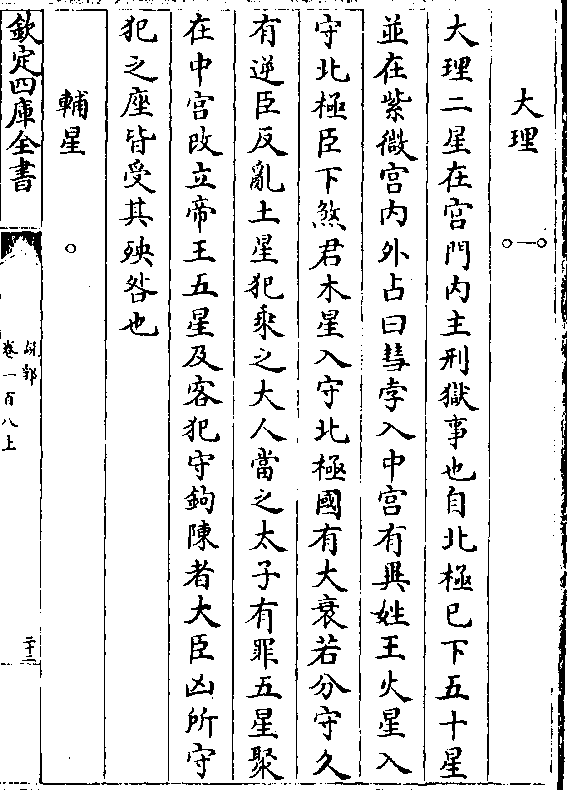 大理
大理二星在宫門内主刑獄事也自北極已下五十星
並在紫微宫内外占曰彗孛入中宫有異姓王火星入
守北極臣下煞君木星入守北極國有大衰若分守久
有逆臣反亂土星犯乘之大人當之太子有罪五星聚
在中宫改立帝王五星及客犯守鉤陳者大臣凶所守
犯之座皆受其殃咎也
輔星
欽定四庫全書
說郛
卷一百八上
二十三